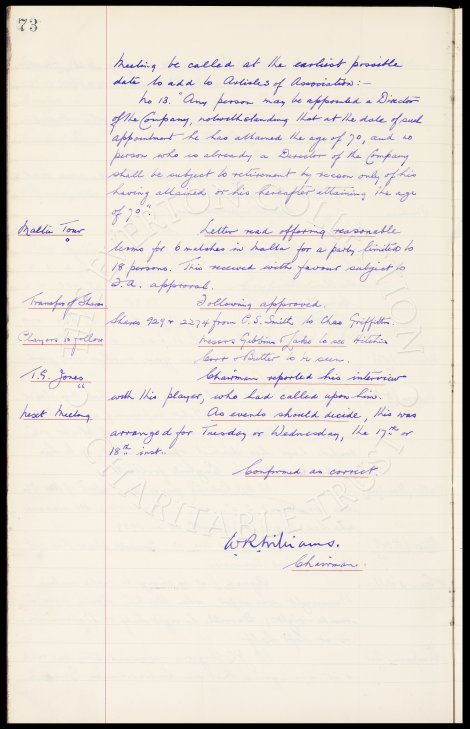 73
Meeting be called at the earliest possible
date to add to Articles of Association:-
No 13. "Any person may be appointed a Director
of the Company, notwithstanding that at the date of such
appointment he has attained the age of 70, and no
person who is already a Director of the Company
shall be subject to retirement by reason only of his
having attained or his hereafter attaining the age
of 70".
Malta Tour Letter read offering reasonable
terms for 6 matches in Malta for a party limited to
18 persons. This received with favour subject to
F.A. approval.
Transfer of Shares Following approved.
Shares 929 & 2274 from C.S. Smith to Chas. Griffiths.
Players to follow Messrs Gibbins & Jake to see Hitchin
Corr & Butler to be seen.
T.G. Jones Chairman reported his interview
with this player, who had called upon him.
Next Meeting As events should decide, this was
arranged for Tuesday or Wednesday, the 17th or
18th inst.
Confirmed as correct.
W.R. Williams.
Chairman.
EVERTON COLLECTION
CHARITABLE TRUST